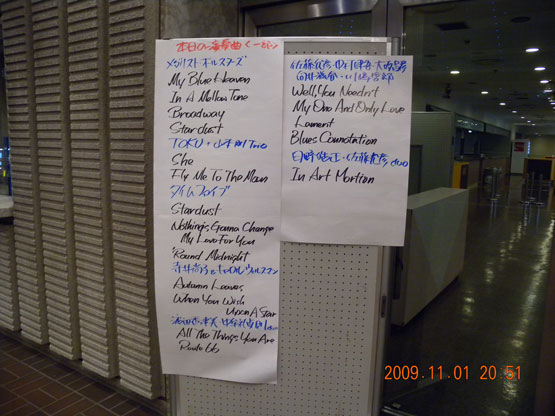 本日の演奏曲
メダリスト・オールスターズ
My Blue Heaven
In A Mellow Tone
Broadway
Stardust
TOKU + 山本剛 Trio
She
Fly Me To The Moon
タイムファイブ
Stardust
Nothing's Gonna Change
My Love For You
'Round Midnight
Autumn Leaves
When You Wish
Upon A Star
All The Things You Are
Route 66
佐藤允彦
Well, You Needn't
My One And Only Love
Lament
Blues Connotation
日野皓正・佐藤允彦 duo
In Art Mortion
2009.11.01 20:51